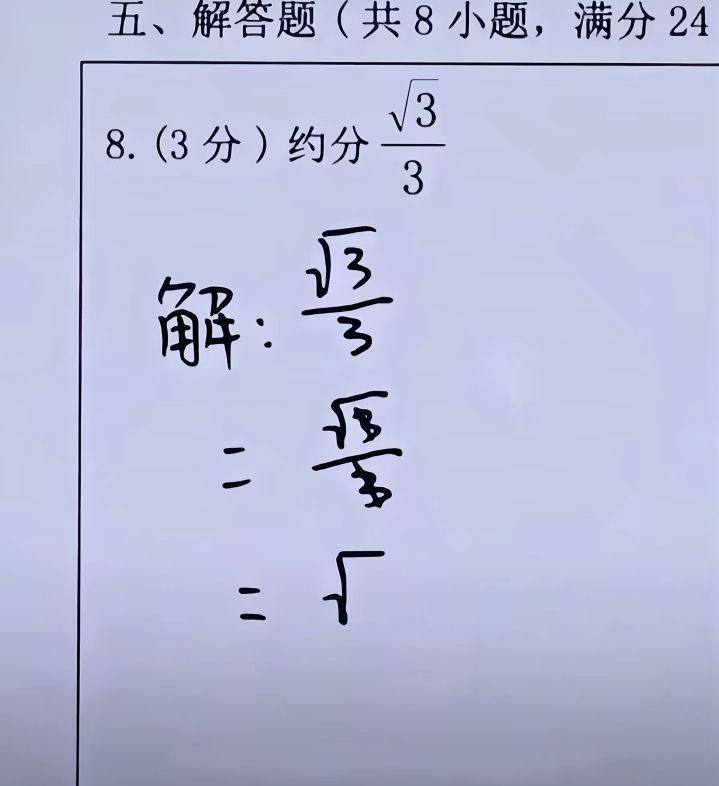 五、解答题（共 8 小题，满分 24
8.（3 分）约分 √3/3
解：√3/3
= √3/3
= √